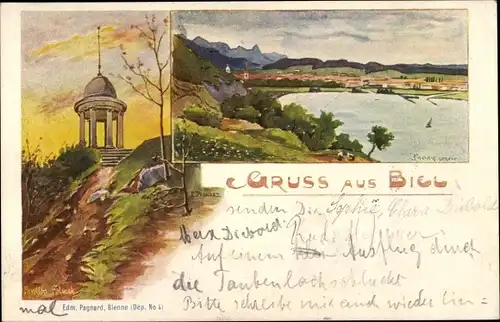 GRUSS AUS BIEL
senden Dir Sophie, Clara Diebold
Max Diebold
Auf einem Ausflug durch
die Taubenlochschlucht
Bitte schreibe mir auch wieder
mal
Edm. Pagnard, Bienne (Dép. No 4)